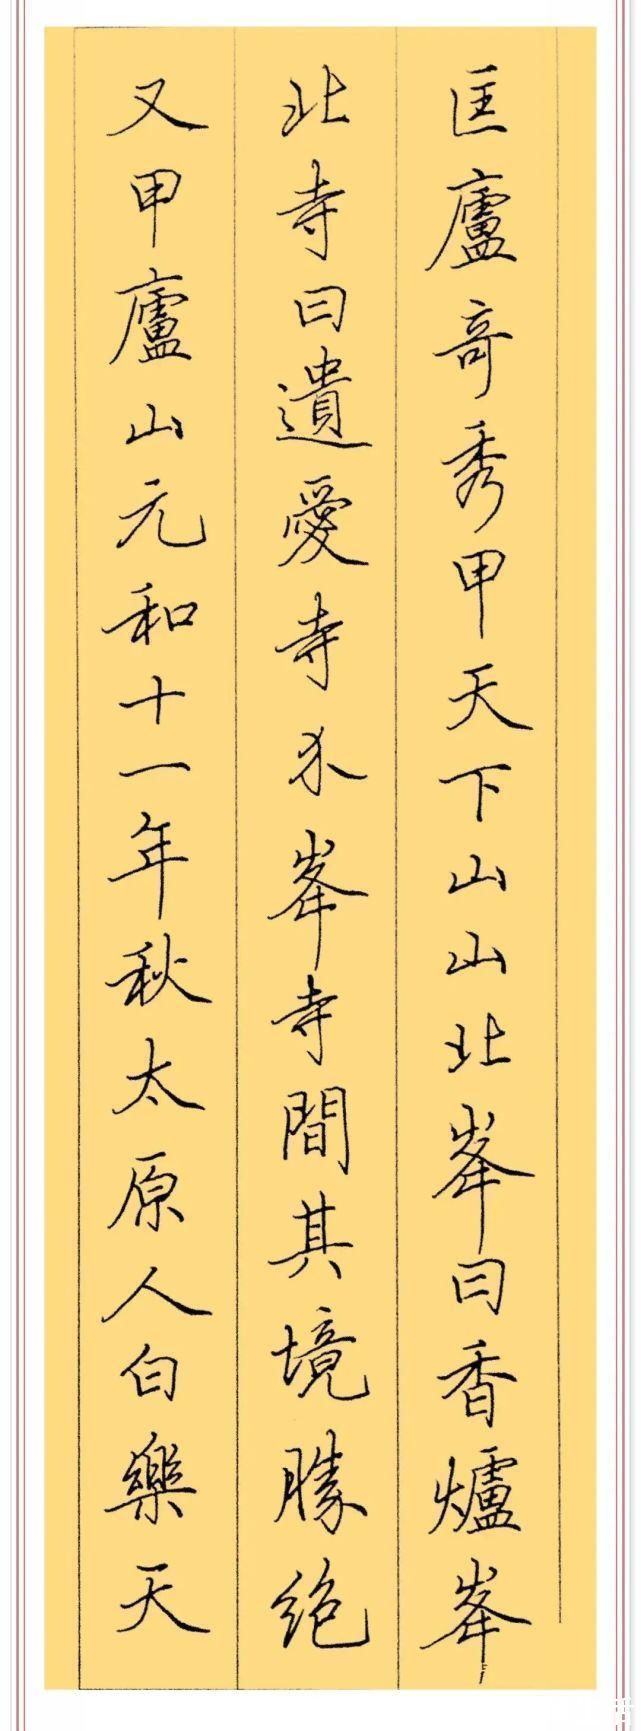 匡廬奇秀甲天下山山北峯曰香爐峯
北寺曰遺愛寺介峯寺間其境勝絶
又甲廬山元和十一年秋太原人白樂天